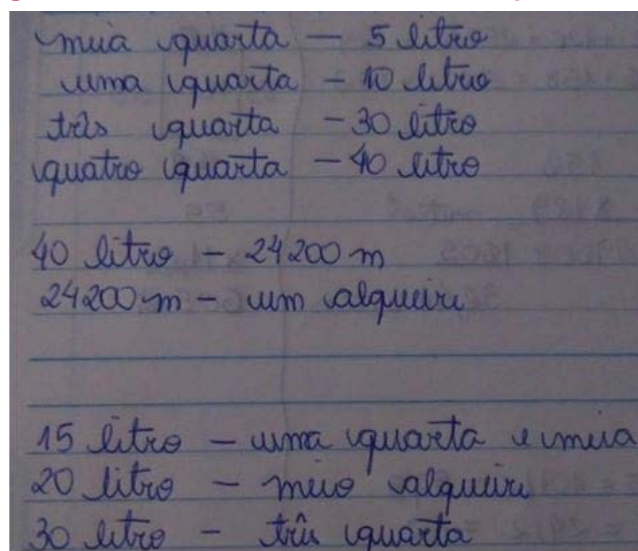 meia quarta — 5 litro
uma quarta - 10 litro
três quarta - 30 litro
quatro quarta - 40 litro
40 litro - 24200 m
24200 m - um alqueire
15 litro - uma quarta e meia
20 litro - meio alqueire
30 litro - três quarta